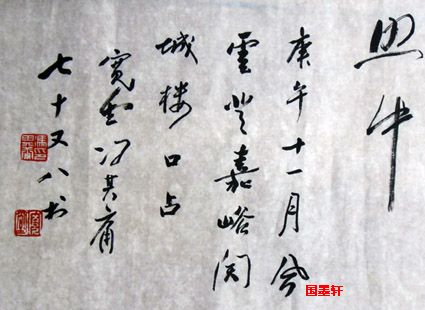 牛
庚午十一月风
雪登嘉峪关
城楼口占
宽堂冯其庸
七十又八书
国墨轩